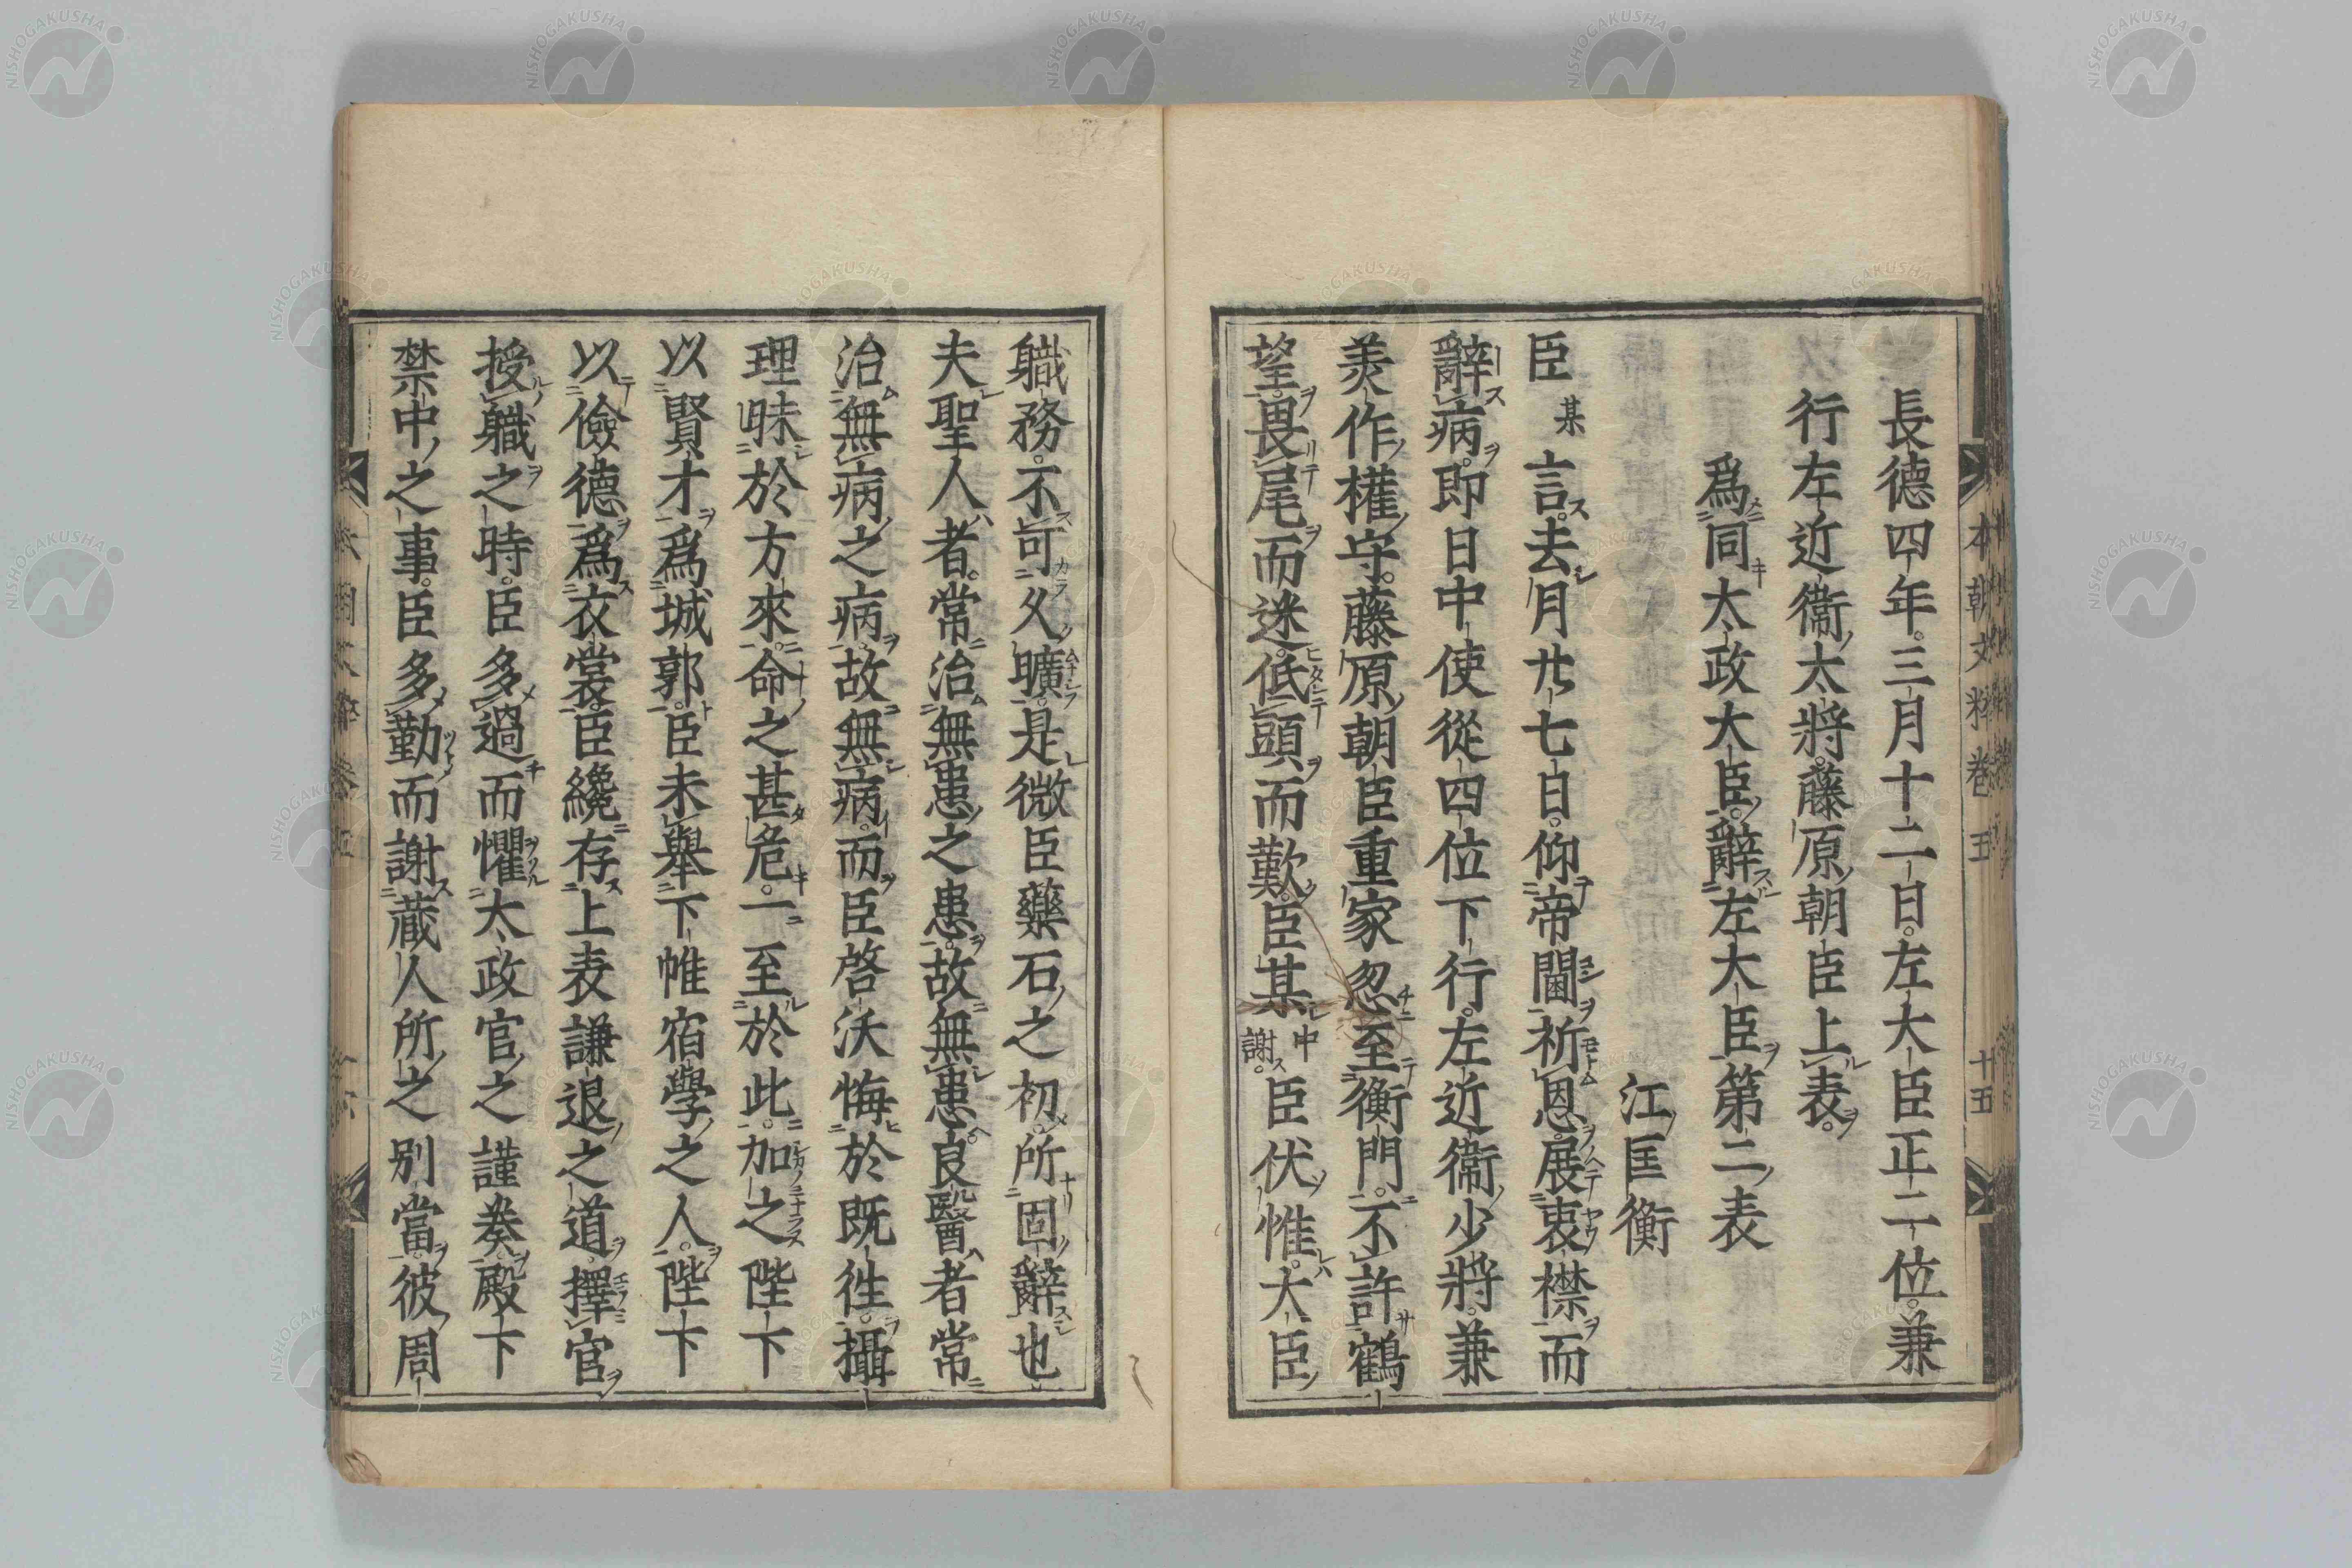 長德四年三月十二日左大臣正二位兼
行左近衞大將藤原朝臣上表
爲同太政大臣辭左大臣第二表
江匡衡
臣某言去月廿七日仰帝閽祈恩展衷襟而
辭病卽日中使從四位下行左近衞少將兼
美作權守藤原朝臣重家忽至衡門不許鶴
望畏尾而迷低頭而歎臣某中謝臣伏惟大臣
職務不可久曠是微臣藥石之初所固辭也
夫聖人者常治無患之患故無患良醫者常
治無病之病故無病而臣啓沃悔於既往攝
理昧於方來命之甚危一至於此加之陛下
以賢才爲城郭臣未擧下帷宿學之人陛下
以儉德爲衣裳臣纔存上表謙退之道擇官
授職之時臣多過而懼太政官之謹奏殿下
禁中之事臣多勤而謝藏人所之別當彼周
本朝文粹卷五
十五
NISHOGAKUSHA